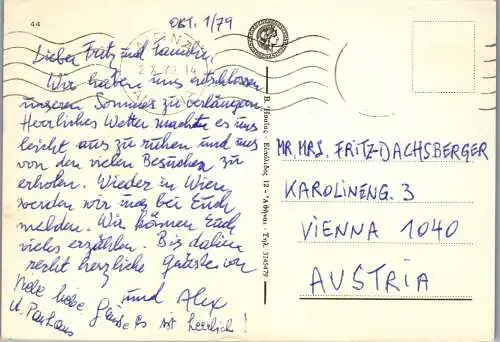 44
OKT. 1/79
Lieber Fritz und Familie,
Wir haben uns entschlossen
unseren Sommer zu verlängern
Herrliches Wetter machte es uns
leicht aus zu ruhen und uns
von den vielen Besuchen zu
erholen. Wieder in Wien
werden wir uns bei Euch
melden. Wir können Euch
vieles erzählen. Bis dahin
recht herzliche Grüsse von
und Alex
viele liebe Grüsse es ist herrlich!
MR. MRS. FRITZ-DACHSBERGER
KAROLINENG. 3
VIENNA 1040
AUSTRIA